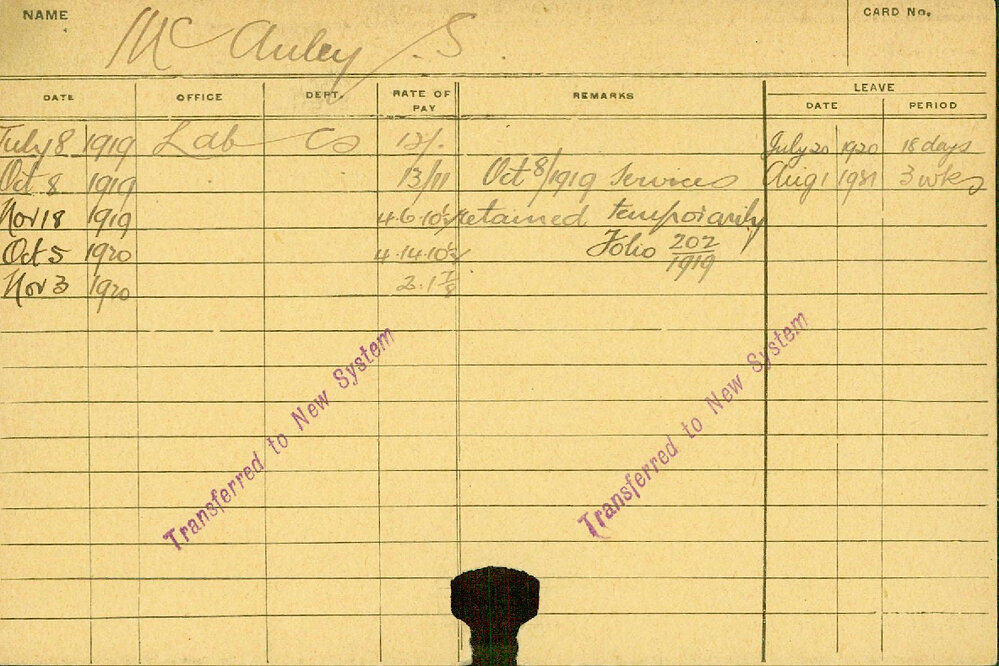 NAME McAuley S. CARD No.
LEAVE
DATE OFFICE DEPT. RATE OF PAY REMARKS DATE PERIOD
July 8 1919 Lab Cs 12/. July 20 1920 18 days
Oct 8 1919 13/11 Oct 8/1919 Services Aug 1 1921 3 wks
Nov 18 1919 4.6. retained temporarily
Oct 5 1920 4.14. Folio 202/1919
Nov 3 1920 2.1 7/8
Transferred to New System
Transferred to New System